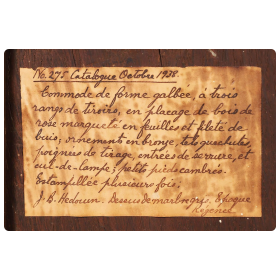 No. 275 Catalogue Octobre 1938.
Commode de forme galbée, à trois
rangs de tiroirs, en placage de bois de
rose marqueté en feuilles et filets de
buis; ornements en bronze, tels que chutes,
poignées de tirage, entrées de serrure, et
cul-de-lampe; petits pieds cambrés.
Estampillée plusieurs fois.
J. B. Hedouin. Dessus de marbre gris. Epoque
Régence.